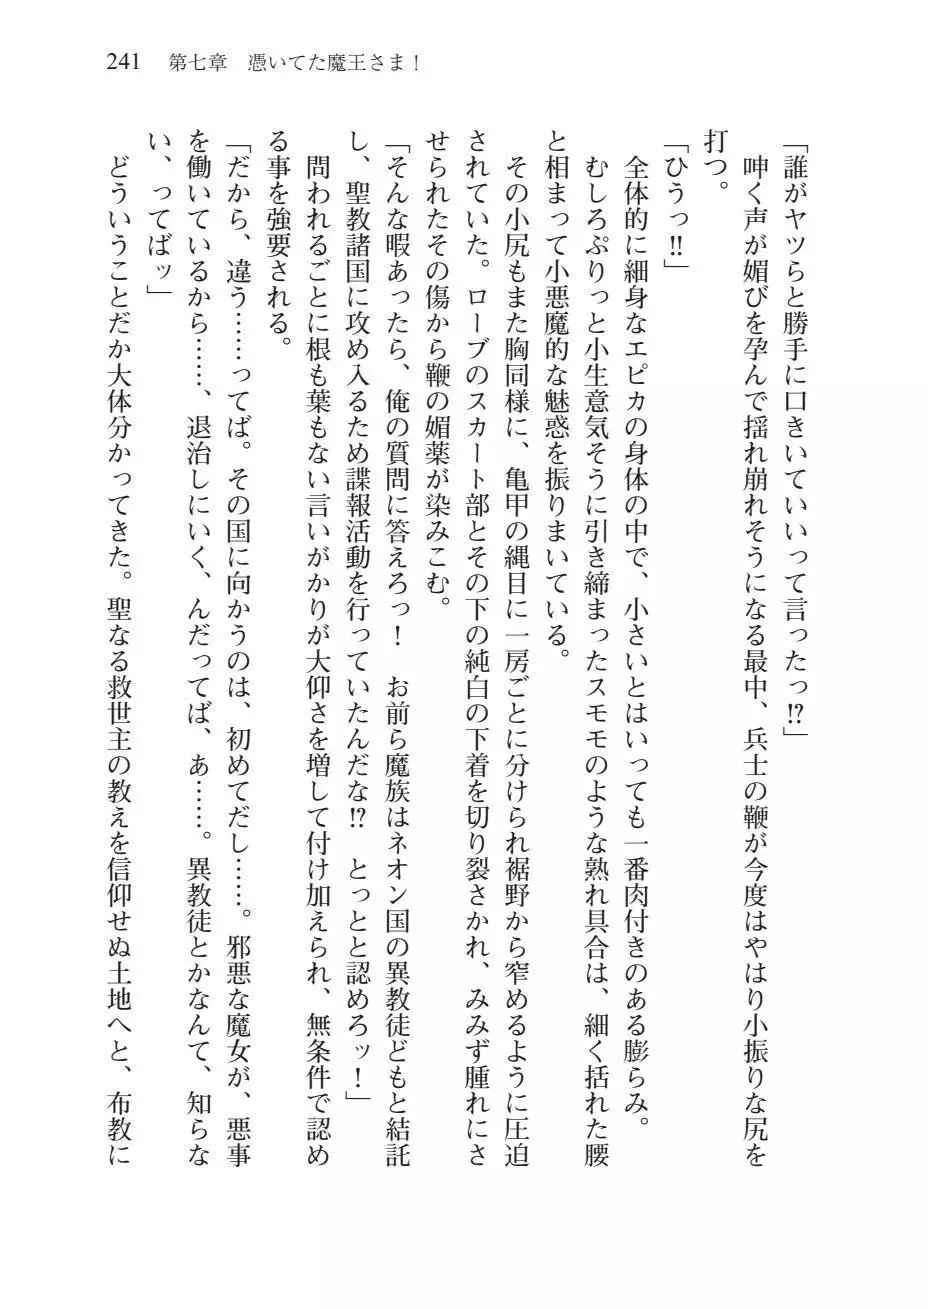 241　第七章　憑いてた魔王さま！
「誰がヤツらと勝手に口きいていいって言ったっ!?」
　呻く声が媚びを孕んで揺れ崩れそうになる最中、兵士の鞭が今度はやはり小振りな尻を
打つ。
「ひうっ!!」
　全体的に細身なエピカの身体の中で、小さいとはいっても一番肉付きのある膨らみ。
　むしろぷりっと小生意気そうに引き締まったスモモのような熟れ具合は、細く括れた腰
と相まって小悪魔的な魅惑を振りまいている。
　その小尻もまた胸同様に、亀甲の縄目に一房ごとに分けられ裾野から窄めるように圧迫
されていた。ローブのスカート部とその下の純白の下着を切り裂さかれ、みみず腫れにさ
せられたその傷から鞭の媚薬が染みこむ。
「そんな暇あったら、俺の質問に答えろっ！　お前ら魔族はネオン国の異教徒どもと結託
し、聖教諸国に攻め入るため諜報活動を行っていたんだな!?　とっとと認めろッ！」
　問われるごとに根も葉もない言いがかりが大仰さを増して付け加えられ、無条件で認め
る事を強要される。
「だから、違う……ってば。その国に向かうのは、初めてだし……。邪悪な魔女が、悪事
を働いているから……、退治しにいく、んだってば、あ……。異教徒とかなんて、知らな
い、ってばッ」
　どういうことだか大体分かってきた。聖なる救世主の教えを信仰せぬ土地へと、布教に